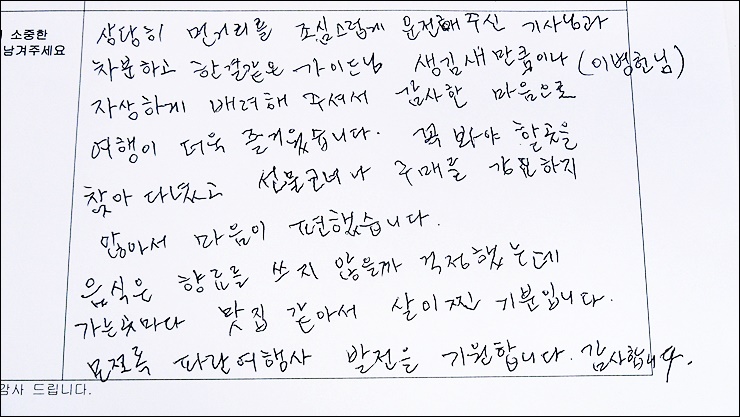 소중한
남겨주세요
상당히 먼거리를 조심스럽게 운전해주신 기사님과
차분하고 한결같은 가이드님 생김새만큼이나 (이병헌님)
자상하게 배려해 주셔서 감사한 마음으로
여행이 더욱 즐거웠습니다. 꼭 봐야 할곳을
찾아 다녔고 선물코너나 구매를 강요하지
않아서 마음이 편했습니다.
음식은 향료를 쓰지 않을까 걱정했는데
가는곳마다 맛집 같아서 살이찐 기분입니다.
모쪼록 파란여행사 발전을 기원합니다. 감사합니다.
감사 드립니다.